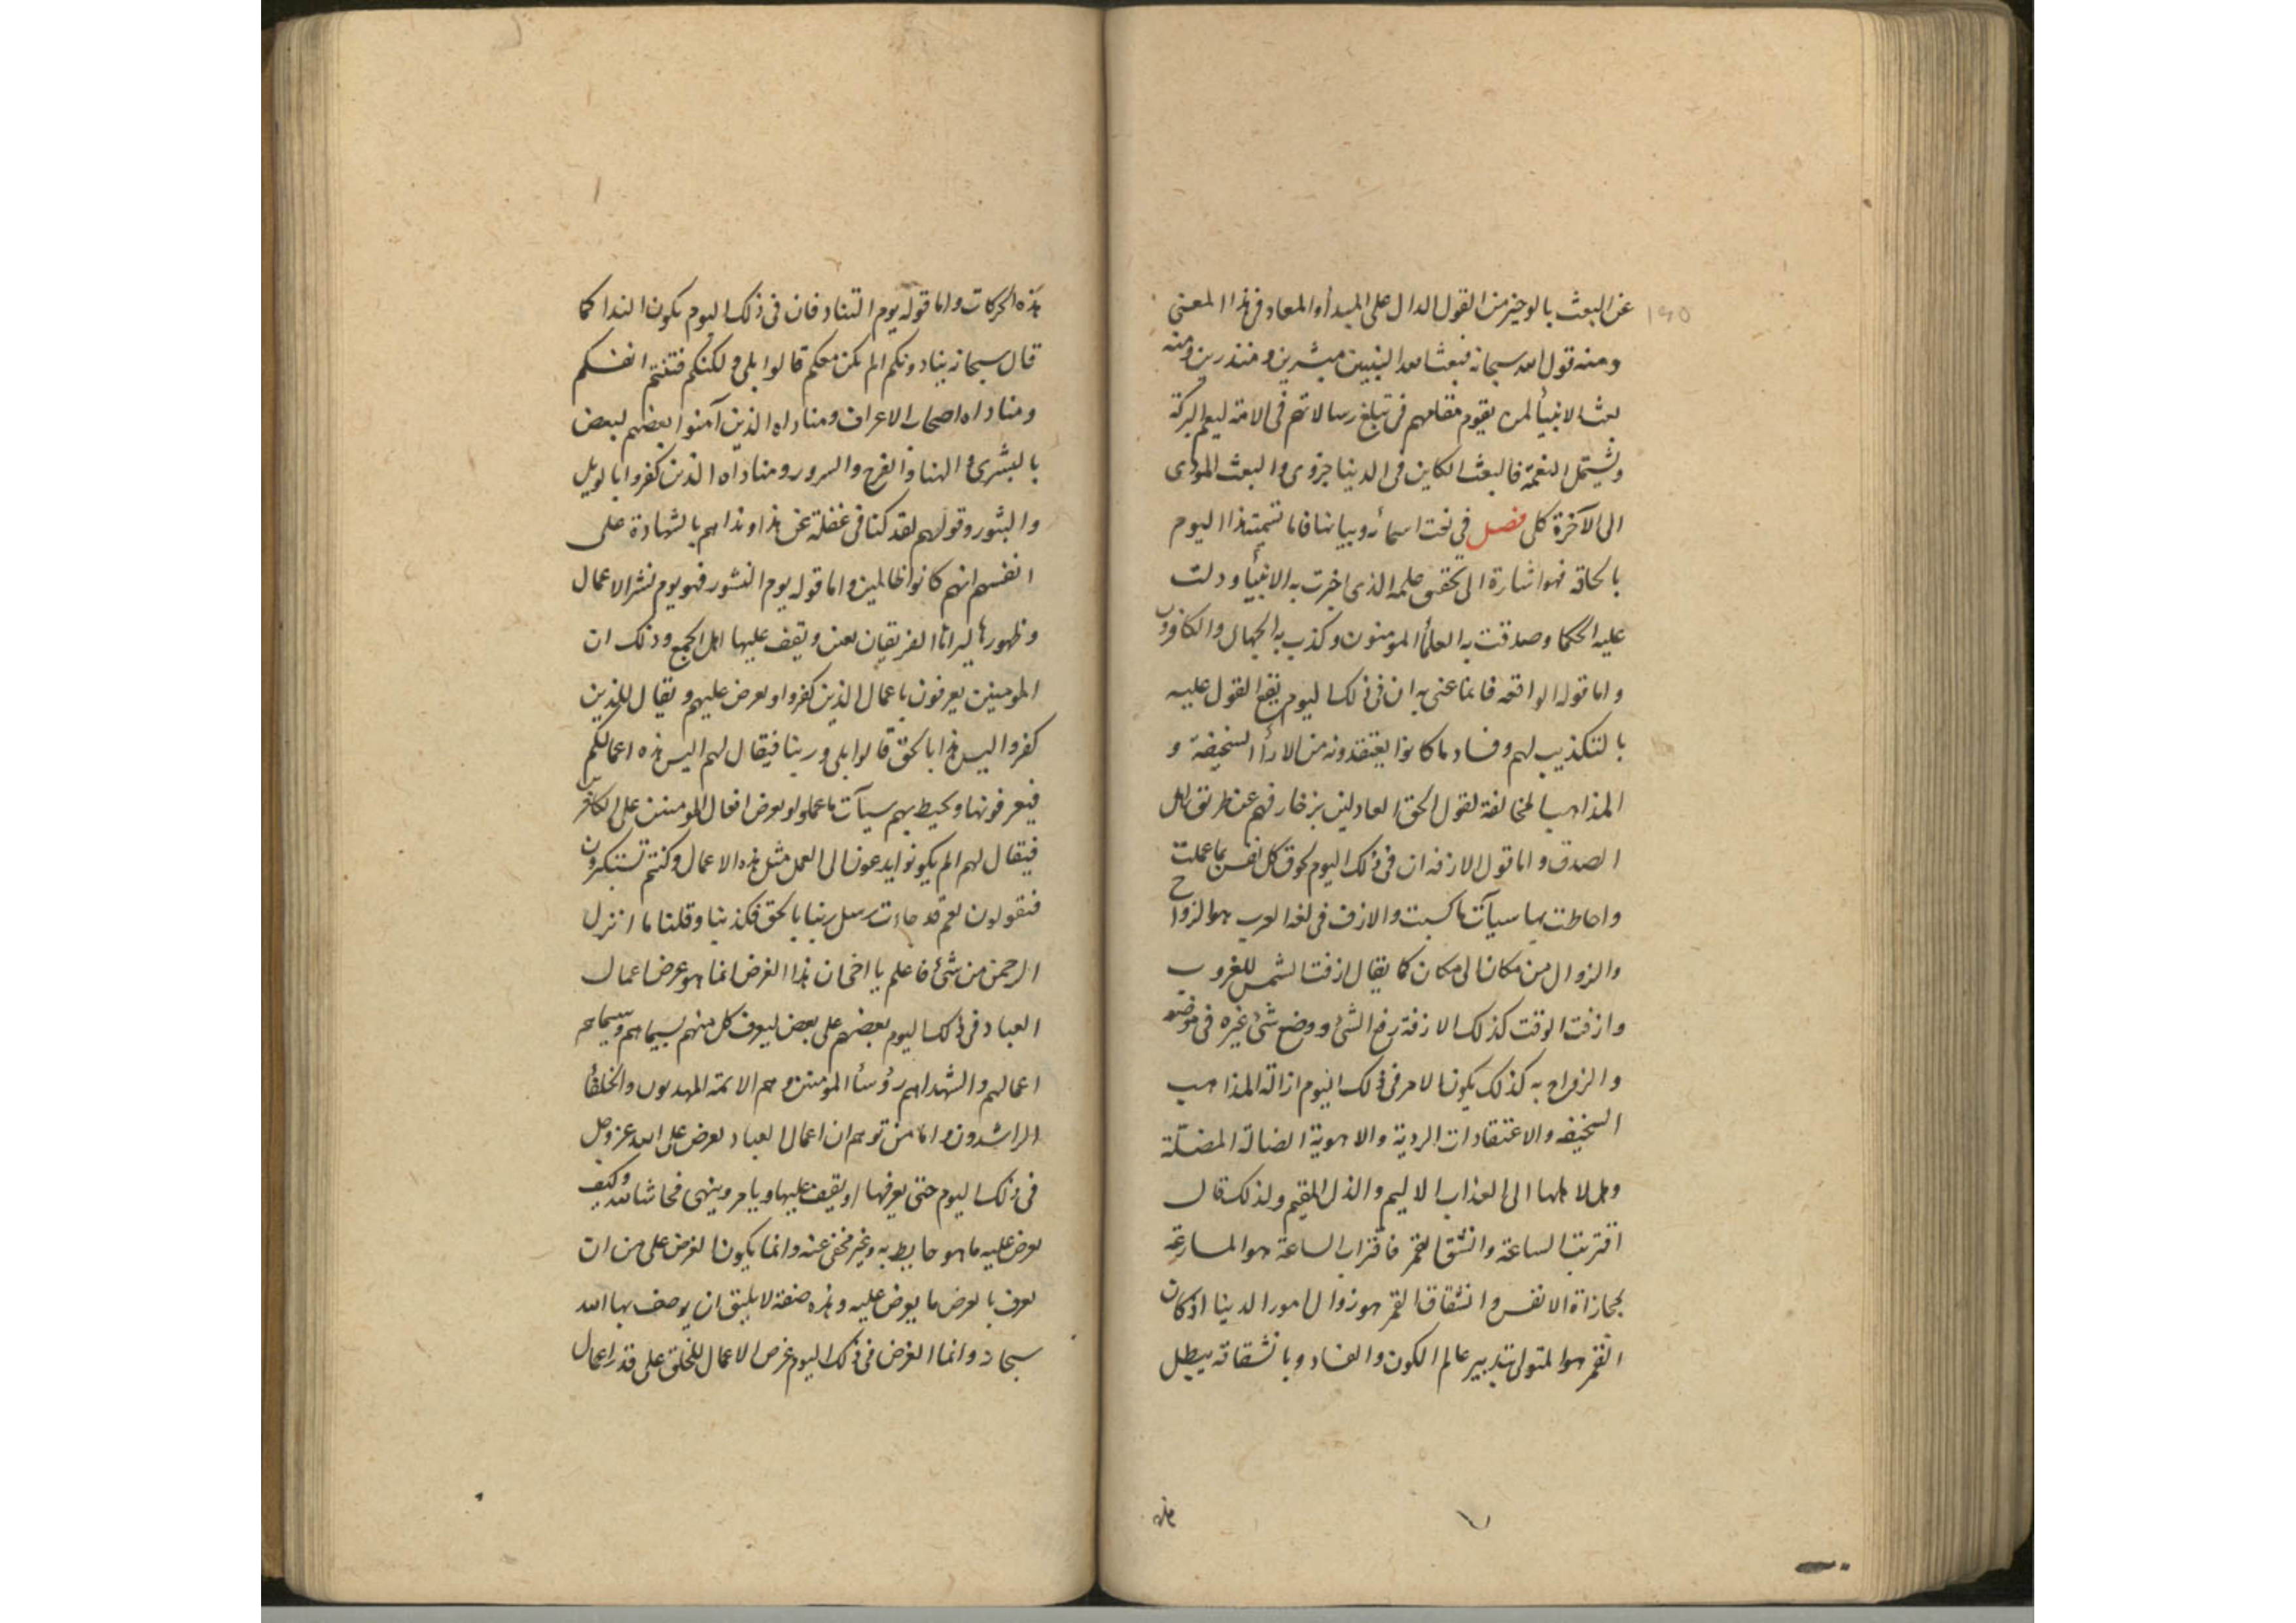 عن البعث بالوجيز من القول الدال على المبدأ والمعاد فى هذا المعنى
ومنه قول الله سبحانه فبعث الله النبيين مبشرين ومنذرين ومنه
بعث الانبيأ لمن يقوم مقامهم فى تبليغ رسالاتهم فى الامة ليعم البركة
وتشتمل النعمة فالبعث الكاين فى الدنيا جزوى والبعث المودى
الى الآخرة كلى فصل فى نعت اسمائه وبيانها فاما تسميته هذا اليوم
بالحاقة فهو اشارة الى تحقيق علمه الذى اخبرت به الانبيأ ودلت
عليه الحكما وصدقت به العلمأ المومنون وكذب به الجهال والكافرون
واما قوله الواقعه فانما عنى به ان فى ذلك اليوم يقع القول عليه
بالتكذيب لهم وفساد ما كانوا يعتقدونه من الارأ السخيفة و
المذاهب المخالفة لقول الحق العادلين بزخارفهم عن طريق اهل
الصدق واما قول الازفه ان فى ذلك اليوم لحوق كل نفس بما عملت
واحاطت بها سيآت ما كسبت والازف فى لغه العرب هو الزواح
والزوال من مكان الى مكان كما يقال ازفت الشمس للغروب
وازفت الوقت كذلك الازفة رفع الشئ ووضع شئ غيره فى موضعه
والزواح به كذلك يكون الامر فى ذلك اليوم ازالة المذاهب
السخيفه والاعتقادات الردية والاهوية الضالة المضلة
وهل لاهلها الى العذاب الاليم والذل المقيم ولذلك قال
اقتربت الساعة وانشق القمر فاقتراب الساعة هو المسارعة
لمجازاة الانفس وانشقاق القمر هو زوال امور الدنيا اذ كان
القمر هو المتولى تدبير عالم الكون والفساد وبانشقاقه يبطل
هذه
هذه الحركات واما قوله يوم التناد فان فى ذلك اليوم يكون الندا كما
قال سبحانه ينادونكم الم نكن معكم قالوا بلى ولكنكم فتنتم انفسكم
ومناداه اصحاب الاعراف ومناداه الذين آمنوا بعضهم لبعض
بالبشرى والهنا والفرح والسرور ومناداه الذين كفروا بالويل
والثبور وقولهم لقد كنا فى غفلة عن هذا ونداهم بالشهادة على
انفسهم انهم كانوا ظالمين واما قوله يوم النشور فهو يوم نشر الاعمال
وظهورها ليراها الفريقان يعنى ويقف عليها اهل الجمع وذلك ان
المومنين يعرفون باعمال الذين كفروا وتعرض عليهم ويقال للذين
كفروا اليس هذا بالحق قالوا بلى وربنا فيقال لهم اليس هذه اعمالكم
فيعرفونها ويحيط بهم سيآت ما عملوا وتعرض افعال المومنين على الكافرين
فيقال لهم الم يكونوا يدعون الى العمل مثل هذه الاعمال وكنتم تستكبرون
فيقولون نعم قد جاءت رسل ربنا بالحق فكذبنا وقلنا ما انزل
الرحمن من شئ فاعلم يا اخى ان هذا العرض انما هو عرض اعمال
العباد فى ذلك اليوم بعضهم على بعض ليعرف كل منهم بسيماهم وسيماهم
اعمالهم والشهدا هم رؤسأ المومنين وهم الائمة المهديون والخلفأ
الراشدون واما من توهم ان اعمال العباد تعرض على الله عز وجل
فى ذلك اليوم حتى يعرفها او يقف عليها ويامر وينهى فحاشا لله وكيف
يعرض عليه ما هو حايط به وغير مخفى عنه وانما يكون العرض على من ان
يعرف بالعرض ما يعرض عليه وهذه صفة لا يليق ان يوصف بها الله
سبحانه وانما العرض فى ذلك اليوم عرض الاعمال للخلق على قدر اعمال